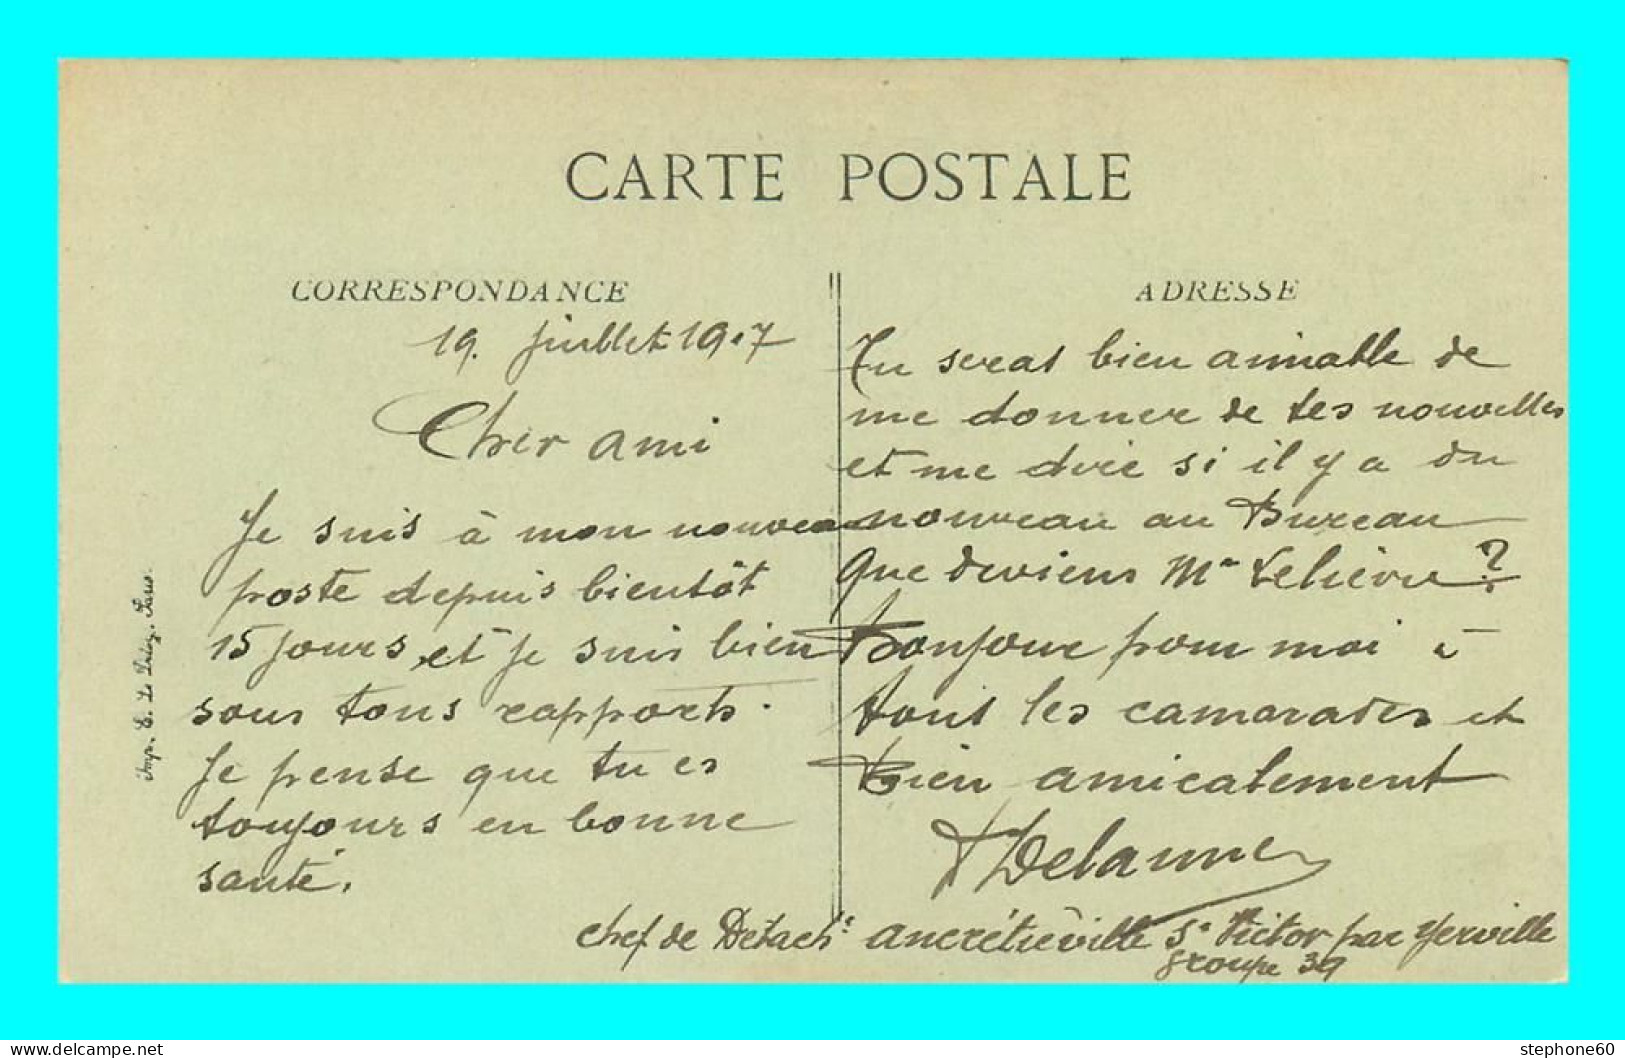 CARTE POSTALE
CORRESPONDANCE
19. juillet 1917
Cher ami
Je suis à mon nouveau
poste depuis bientôt
15 jours, et je suis bien
sous tous rapports.
Je pense que tu es
toujours en bonne
santé.
ADRESSE
Tu seras bien aimable de
me donner de tes nouvelles
et me dire si il y a du
nouveau au Bureau
que deviens Mr Lelièvre ?
Bonjour pour moi à
tous les camarades et
bien amicalement
Delaune
chef de Détacht ancrétiéville St Victor par Yerville
groupe 39
Imp. E. Le Deley, Paris.
www.delcampe.net
stephone60